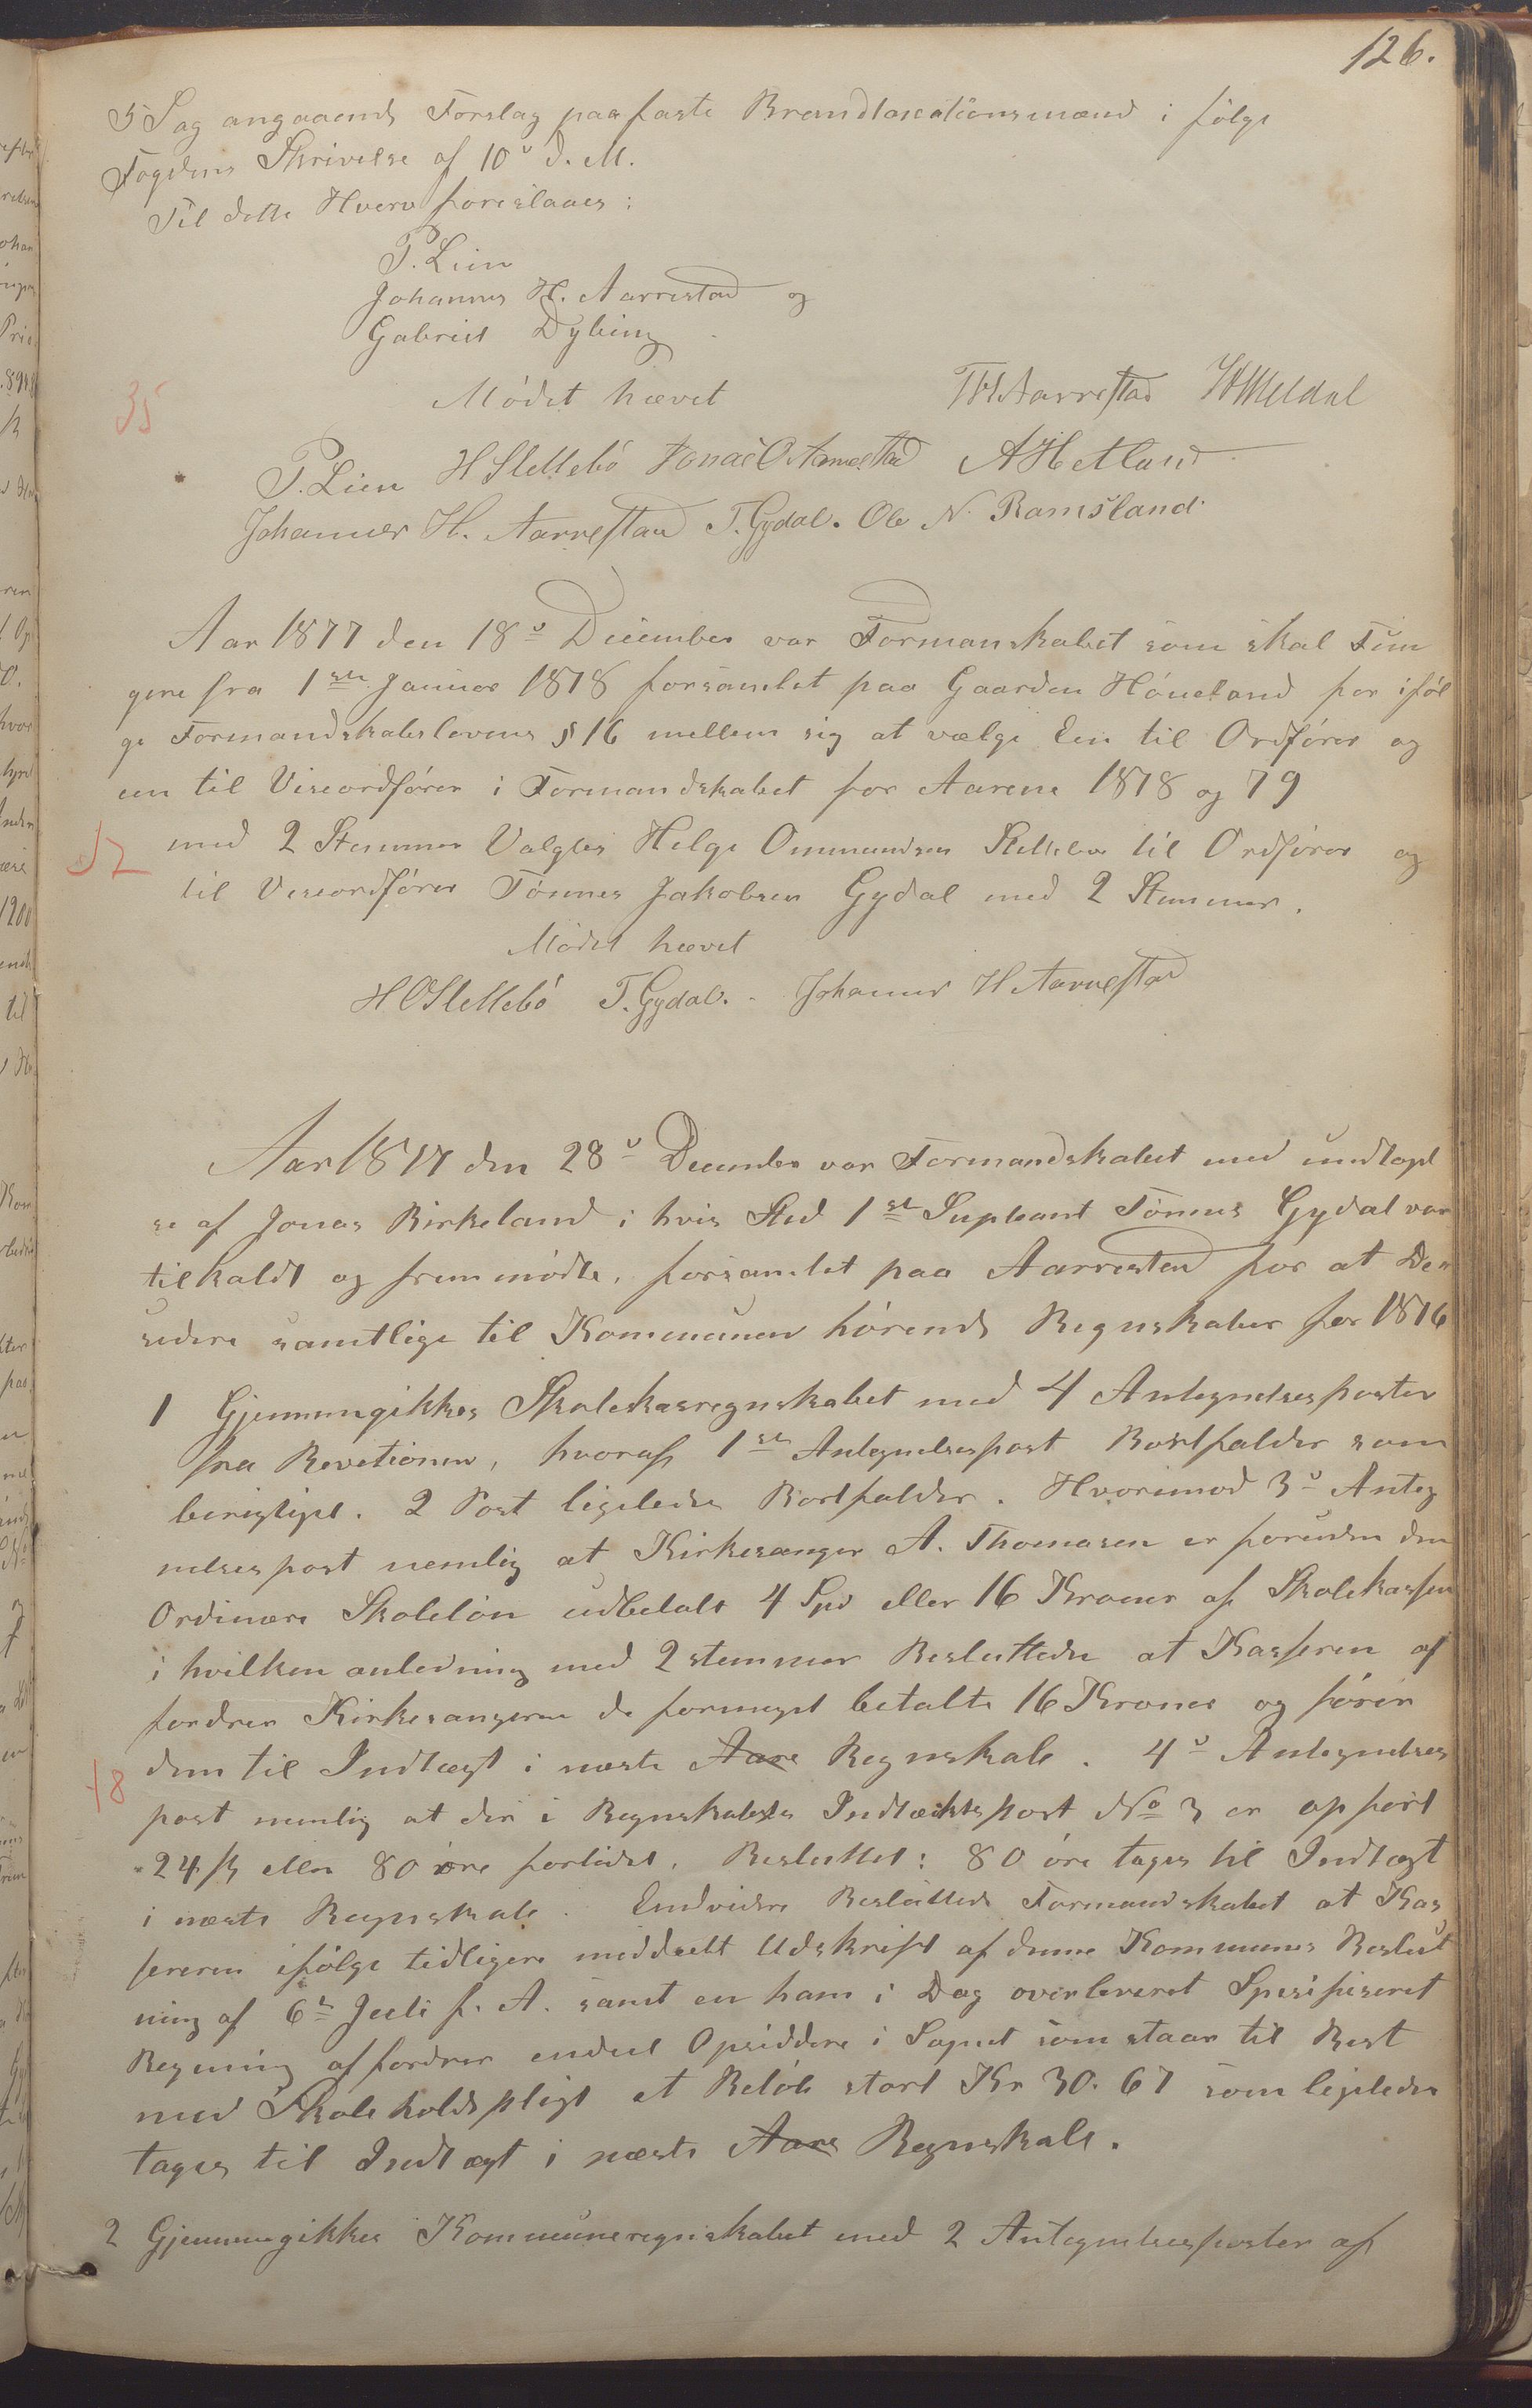 126.
5 Sag angaaende Forslag paa faste Brandtaxationsmænd i følge
Fogdens Skrivelse af 10de d. M.
Til dette Hverv foreslaaes:
P. Lien
Johannes H. Aarrestad og
Gabriel Dybing
Mødet hævet
TH Aarrestad
35
P. Lien H Slettebö Jonas O Aarrestad A Hetland
Johannes H. Aarrestad T. Gydal. Ole N. Ramsland
Aar 1877 den 18de December var Formanskabet som skal Fun
gere fra 1ste Januar 1878 forsamlet paa Gaarden Höneland for iføl
ge Formandskabslovens § 16 mellem sig at vælge Een til Ordfører og
en til Viseordfører i Formandskabet for Aarene 1878 og 79
med 2 Stemmer Valgtes Helge Ommundsen Slettebø til Ordfører og
til Viseordfører Tønnes Jakobsen Gydal med 2 Stemmer.
Mødet hævet
H O Slettebö T. Gydal. Johannes H Aarrestad
Aar 1877 den 28de December var Formandskabet med undtagel
se af Jonas Birkeland i hvis Sted 1ste Supleant Tønnes Gydal var
tilkaldt og fremmødte, forsamlet paa Aarrestad for at De
sidere samtlige til Kommunen hørende Regnskaber for 1876
1 Gjennemgikkes Skolekasregnskabet med 4 Antegnelsesposter
fra Revetionen, hvoraf 1ste Antegnelsespost Bortfalder som
berigtiget. 2 Post ligeledes Bortfalder. Hvorimod 3de Anteg
nelsespost nemlig at Kirkesanger A. Thomasen er foruden den
Ordinære Skoleløn udbetalt 4 Spd eller 16 Kroner af Skolekassen
i hvilken anledning med 2 stemmer Besluttedes at Kasseren af
fordrer Kirkesangeren de formeget betalte 16 Kroner og fører
dem til Indtægt i næste Aars Regnskab. 4de Antegnelses
48
post nemlig at der i Regnskabets Indtæktspost No 3 er opført
24 ß eller 80 øre forlidet. Besluttet: 80 øre tages til Indtægt
i næste Regnskab. Endvidere Besluttede Formandskabet at Kas
sereren ifølge tidligere meddeelt Udskrift af denne Kommunes Beslut
ning af 6te Juli f. A. samt en ham i Dag overleveret Spesifiseret
Regning affordrer endeel Opsiddere i Sognet som staar til Rest
med Skoleholdspligt et Beløb stort Kr 30.67 som ligeledes
tages til Indtægt i næste Aars Regnskab.
2 Gjennemgikkes Kommuneregnskabet med 2 Antegnelsesposter af